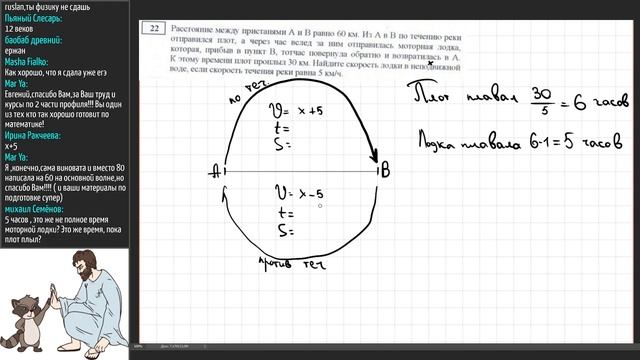 ruslan,ты физику не сдашь
Пьяный Слесарь:
12 веков
баобаб древний:
ержан
Masha Fialko:
Как хорошо, что я сдала уже егэ
Маг Уа:
Евгений,спасибо Вам,за Ваш труд и
курсы по 2 части профиля!!! Вы один
из тех кто так хорошо готовит по
математике!
Ирина Ракчеева:
x+5
Маг Уа:
Я ,конечно,сама виновата и вместо 80
написала на 60 на основной волне,но
спасибо Вам!!!! ( и ваши материалы по
подготовке супер)
михаил Семёнов:
5 часов , это же не полное время
моторной лодки? Это же время, пока
плот плыл?
22
Расстояние между пристанями А и В равно 60 км. Из А в В по течению реки
отправился плот, а через час вслед за ним отправилась моторная лодка,
которая, прибыв в пункт В, тотчас повернула обратно и возвратилась в А.
К этому времени плот проплыл 30 км. Найдите скорость лодки в неподвижной
воде, если скорость течения реки равна 5 км/ч.
x
по теч.
V = x+5
t =
S =
A
B
V = x-5
t =
S =
против теч
Плот плавал 30/5 = 6 часов
Лодка плавала 6-1 = 5 часов